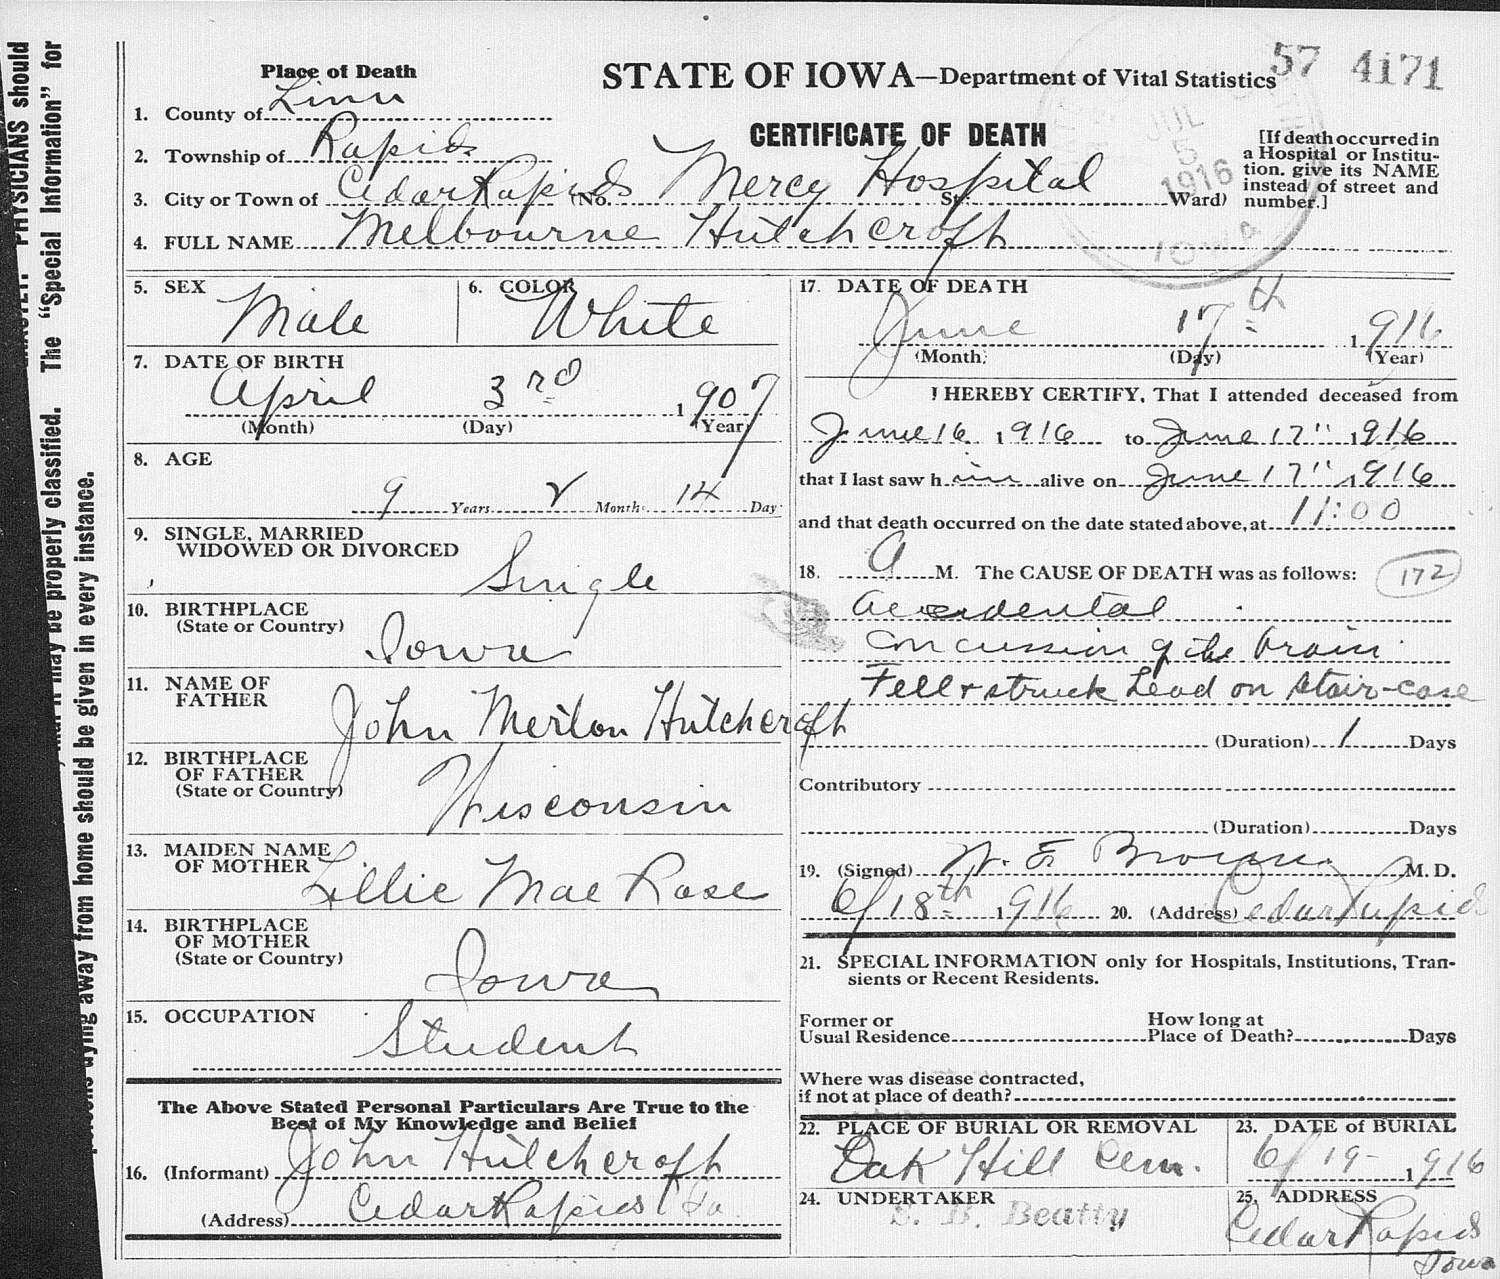 PHYSICIANS should
The "Special Information" for
may be properly classified.
dying away from home should be given in every instance.
57 4171
STATE OF IOWA—Department of Vital Statistics
CERTIFICATE OF DEATH
JUL
5
1916
IOWA
[If death occurred in
a Hospital or Institu-
tion. give its NAME
instead of street and
number.]
Place of Death
1. County of Linn
2. Township of Rapids
3. City or Town of Cedar Rapids (No. Mercy Hospital St. Ward)
4. FULL NAME Melbourne Hutchcroft
5. SEX Male
6. COLOR White
7. DATE OF BIRTH
April 3rd 1907
(Month) (Day) (Year)
8. AGE
9 Years 2 Months 14 Day
9. SINGLE, MARRIED
WIDOWED OR DIVORCED
Single
10. BIRTHPLACE
(State or Country)
Iowa
11. NAME OF
FATHER
John Merton Hutchcroft
12. BIRTHPLACE
OF FATHER
(State or Country)
Wisconsin
13. MAIDEN NAME
OF MOTHER Lillie Mae Rose
14. BIRTHPLACE
OF MOTHER
(State or Country)
Iowa
15. OCCUPATION
Student
The Above Stated Personal Particulars Are True to the
Best of My Knowledge and Belief
16. (Informant) John Hutchcroft
(Address) Cedar Rapids Ia.
17. DATE OF DEATH
June 17th 1916
(Month) (Day) (Year)
I HEREBY CERTIFY, That I attended deceased from
June 16 1916 to June 17" 1916
that I last saw him alive on June 17" 1916
and that death occurred on the date stated above, at 11:00
18. A M. The CAUSE OF DEATH was as follows: 172
Accidental
concussion of the brain
Fell & struck head on stair-case
(Duration) 1 Days
Contributory
(Duration) Days
19. (Signed) W. E. M. D.
6/18th 1916 20. (Address) Cedar Rapids
21. SPECIAL INFORMATION only for Hospitals, Institutions, Tran-
sients or Recent Residents.
Former or
Usual Residence
How long at
Place of Death? Days
Where was disease contracted,
if not at place of death?
22. PLACE OF BURIAL OR REMOVAL
Oak Hill Cem.
23. DATE OF BURIAL
6/19- 1916
24. UNDERTAKER
S. B. Beatty
25. ADDRESS
Cedar Rapids
Iowa